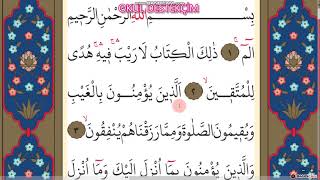 ©KUL DESTEKÇİM
بِسْــــــمِ اللهِ الرَّحْمٰنِ الرَّحٖيمِ
الٓمٓ ۚ ﴿١﴾ ذٰلِكَ الْكِتَابُ لَا رَيْبَ ۚۛ فٖيهِ ۚۛ هُدًى
لِلْمُتَّقٖينَ ۙ ﴿٢﴾ اَلَّذٖينَ يُؤْمِنُونَ بِالْغَيْبِ
وَيُقٖيمُونَ الصَّلٰوةَ وَمِمَّا رَزَقْنَاهُمْ يُنْفِقُونَ ۙ ﴿٣﴾
وَالَّذٖينَ يُؤْمِنُونَ بِمَٓا اُنْزِلَ اِلَيْكَ وَمَٓا اُنْزِلَ